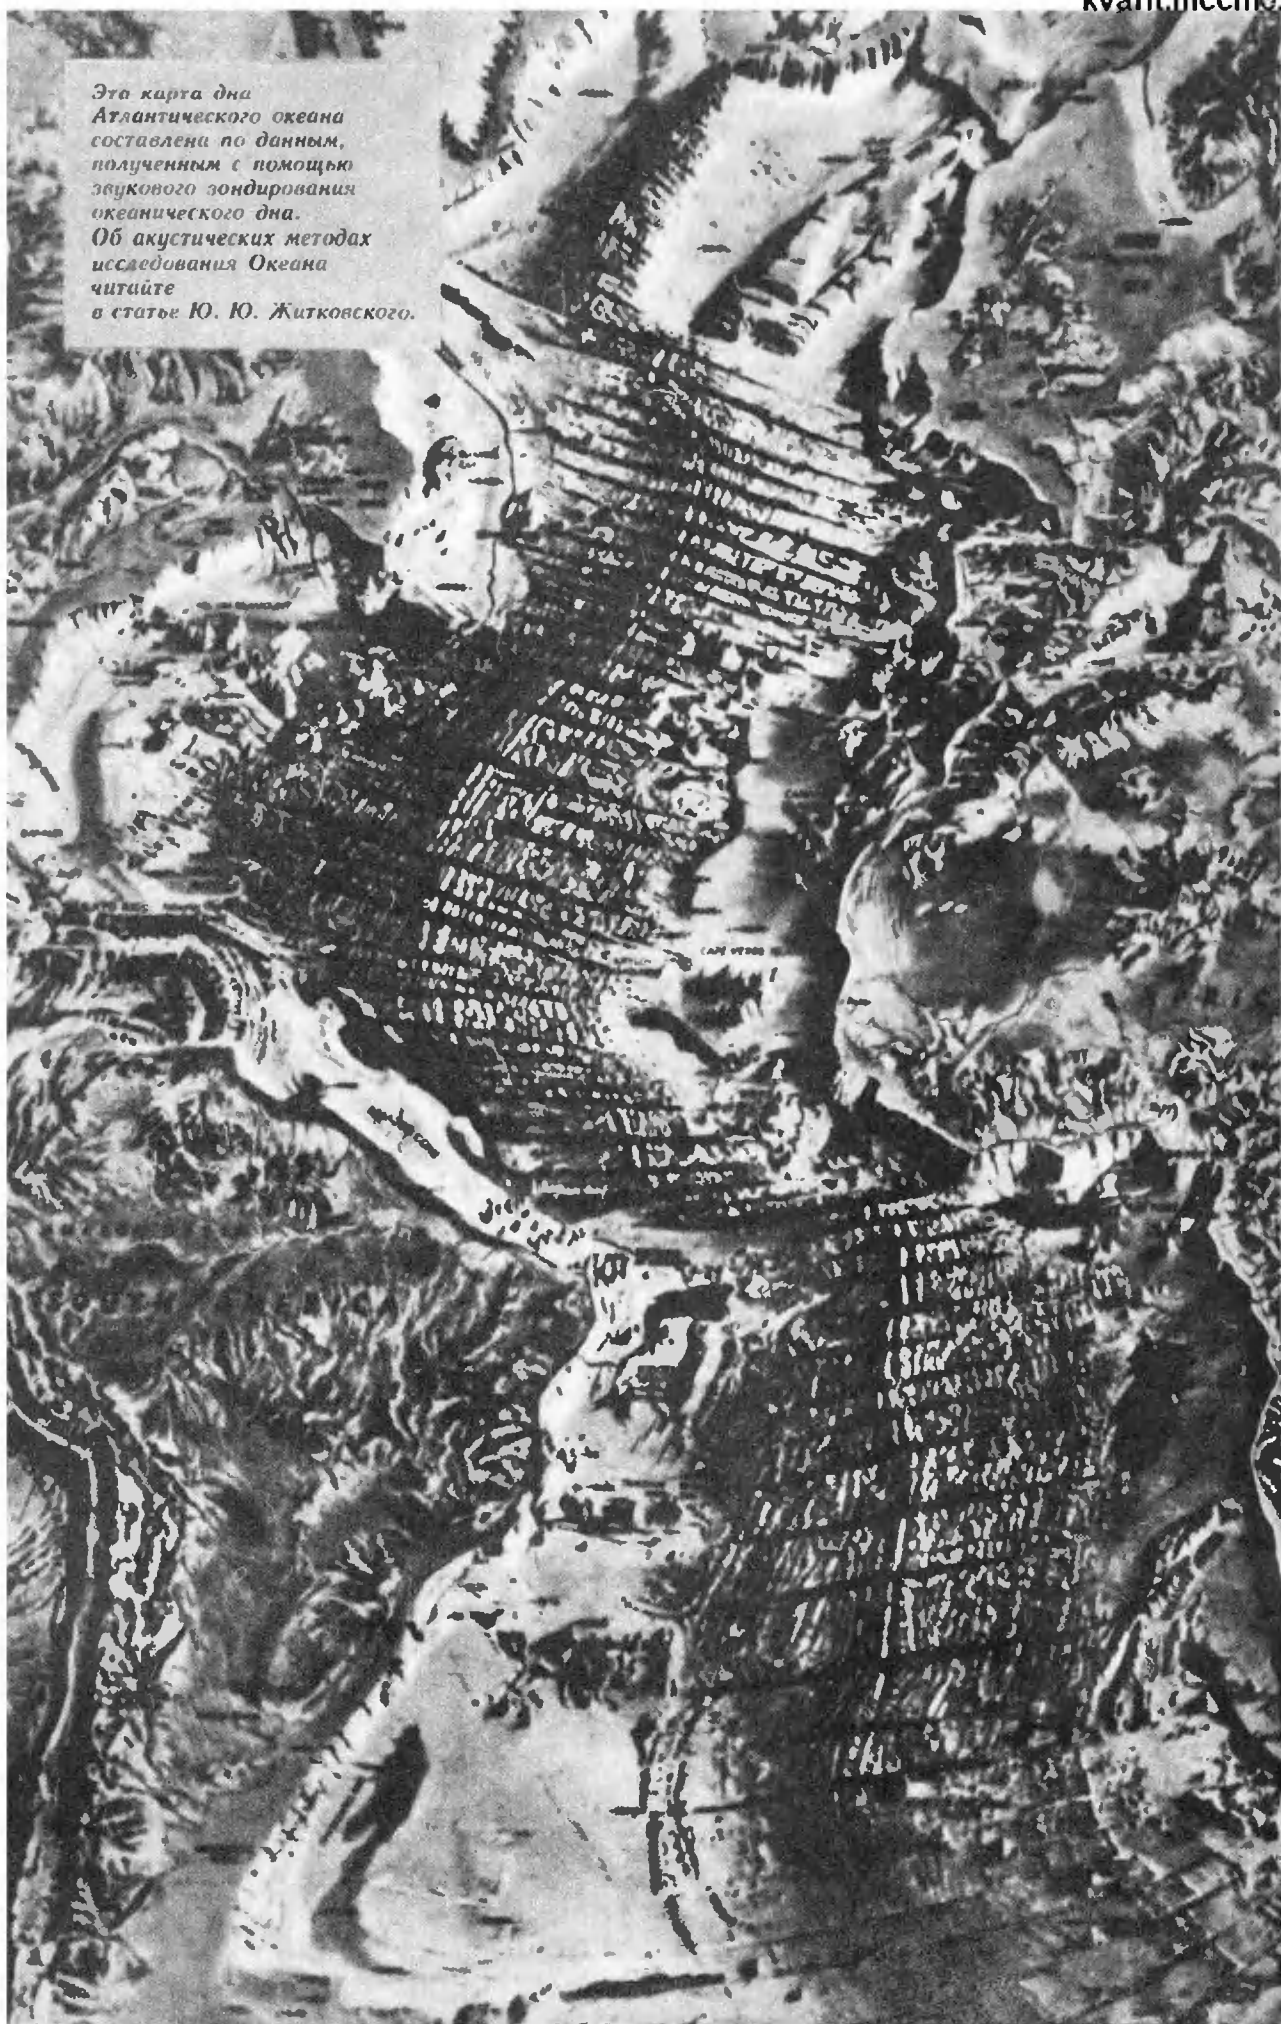 Эта карта дна
Атлантического океана
составлена по данным,
полученным с помощью
звукового зондирования
океанического дна.
Об акустических методах
исследования Океана
читайте
в статье Ю. Ю. Житковского.
CAPE VERDE